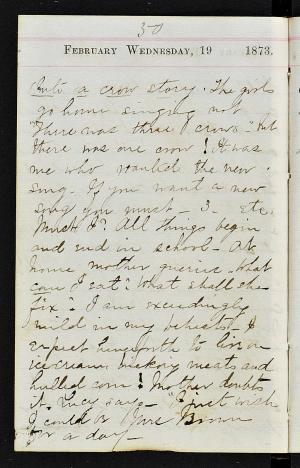 30
FEBRUARY WEDNESDAY, 19 1873.
a crow story. The girls
go home singing not
"There was three crows" but
there was one crow! It was
me who wanted the new
song. If you want a new
song you must - 3. etc.
Must I? All things begin
and end in school - At
home mother queries "What
can I eat? What shall she
fix". I am exceedingly
mild in my behests. I
expect henceforth to live on
icecream, hickory meats and
hulled corn! Mother doubts
it. Lucy says - "I just wish
I could be Brown
for a day -